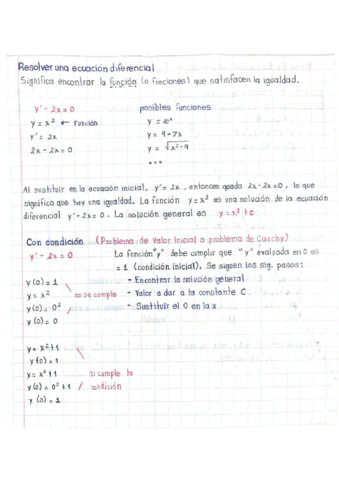 Resolver una ecuación diferencial
Significa encontrar la función (o funciones) que satisfacen la igualdad.
y' - 2x = 0    posibles funciones
y = x² ← Función    y = eˣ
y' = 2x    y = 4 - 7x
2x - 2x = 0    y = √x² - 9
...
Al sustituir en la ecuación inicial, y' = 2x, entonces queda 2x - 2x = 0, lo que
significa que hay una igualdad. La función y = x² es una solución de la ecuación
diferencial y' - 2x = 0. La solución general es y = x² + c
Con condición (Problema de Valor Inicial o problema de Cauchy)
y' - 2x = 0    La función "y" debe cumplir que "y" evaluada en 0 es
= 1 (condición inicial). Se siguen los sig. pasos:
y(0) = 1    - Encontrar la solución general
y = x²    no se cumple    - Valor a dar a la constante C
y(0) = 0²    - Sustituir el 0 en la x
y(0) = 0
y = x² + 1
y(0) = 1
y = x² + 1    si cumple la
y(0) = 0² + 1    condición
y(0) = 1